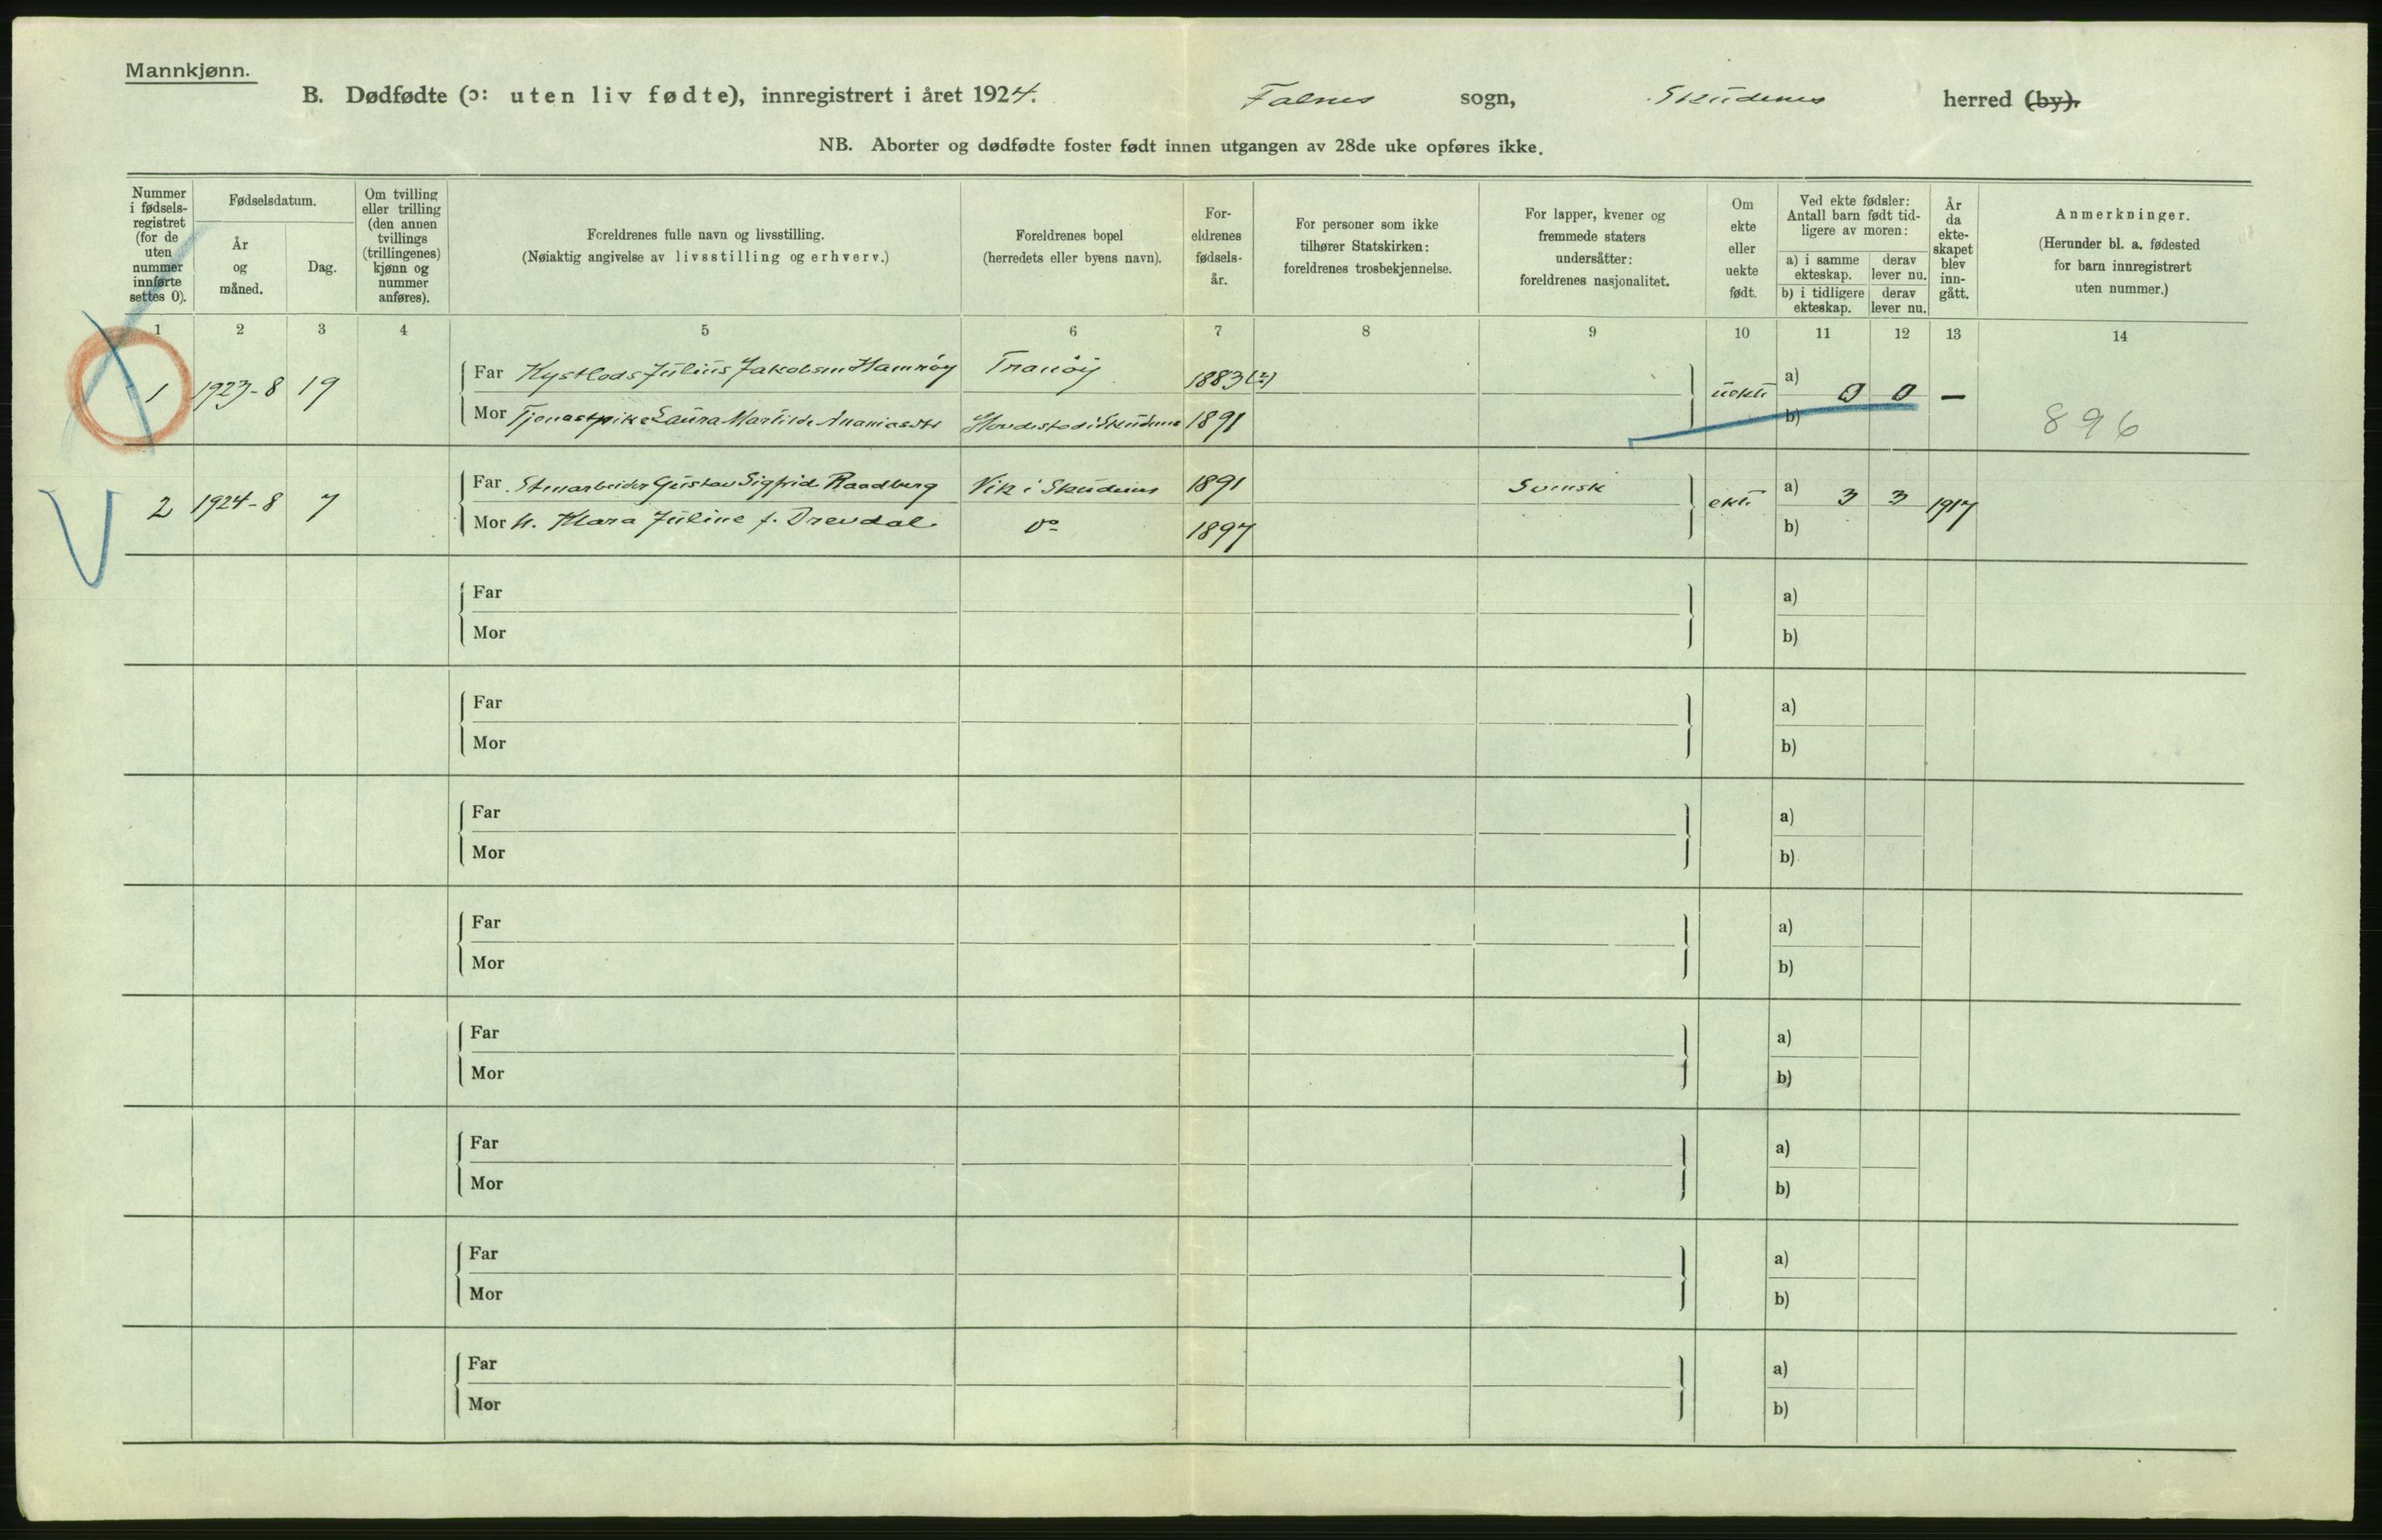 Mannkjønn.
B. Dødfødte (ɔ: uten liv fødte), innregistrert i året 1924. Falnes sogn, Skudenes herred (by).
NB. Aborter og dødfødte foster født innen utgangen av 28de uke opføres ikke.
Nummer i fødsels-registret (for de uten nummer innførte settes 0).
Fødselsdatum.
År og måned.
Dag.
Om tvilling eller trilling (den annen tvillings (trillingenes) kjønn og nummer anføres).
Foreldrenes fulle navn og livsstilling.
(Nøiaktig angivelse av livsstilling og erhverv.)
Foreldrenes bopel
(herredets eller byens navn).
For-eldrenes fødsels-år.
For personer som ikke tilhører Statskirken: foreldrenes trosbekjennelse.
For lapper, kvener og fremmede staters undersåtter: foreldrenes nasjonalitet.
Om ekte eller uekte født.
Ved ekte fødsler: Antall barn født tid-ligere av moren:
a) i samme ekteskap. derav lever nu.
b) i tidligere ekteskap. derav lever nu.
År da ekte-skapet blev inn-gått.
Anmerkninger.
(Herunder bl. a. fødested for barn innregistrert uten nummer.)
1 2 3 4 5 6 7 8 9 10 11 12 13 14
Far Kystlods Julius Jakobsen Hamnöy Tranöy 1883 (?) a)
1 1923-8 19 uekte 0 0 —
Mor Tjenestpike Laura Martilde Ananiasdtr i Skudenes 1891 b) 896
Far Stenarbeider Gustav Sigfrid Raadberg Vik i Skudenes 1891 Svensk a) 3 3
2 1924-8 7 ekte 1917
Mor H. Klara Juline f. Drevdal Do 1897 b)
Far a)
Mor b)
Far a)
Mor b)
Far a)
Mor b)
Far a)
Mor b)
Far a)
Mor b)
Far a)
Mor b)
Far a)
Mor b)
Far a)
Mor b)